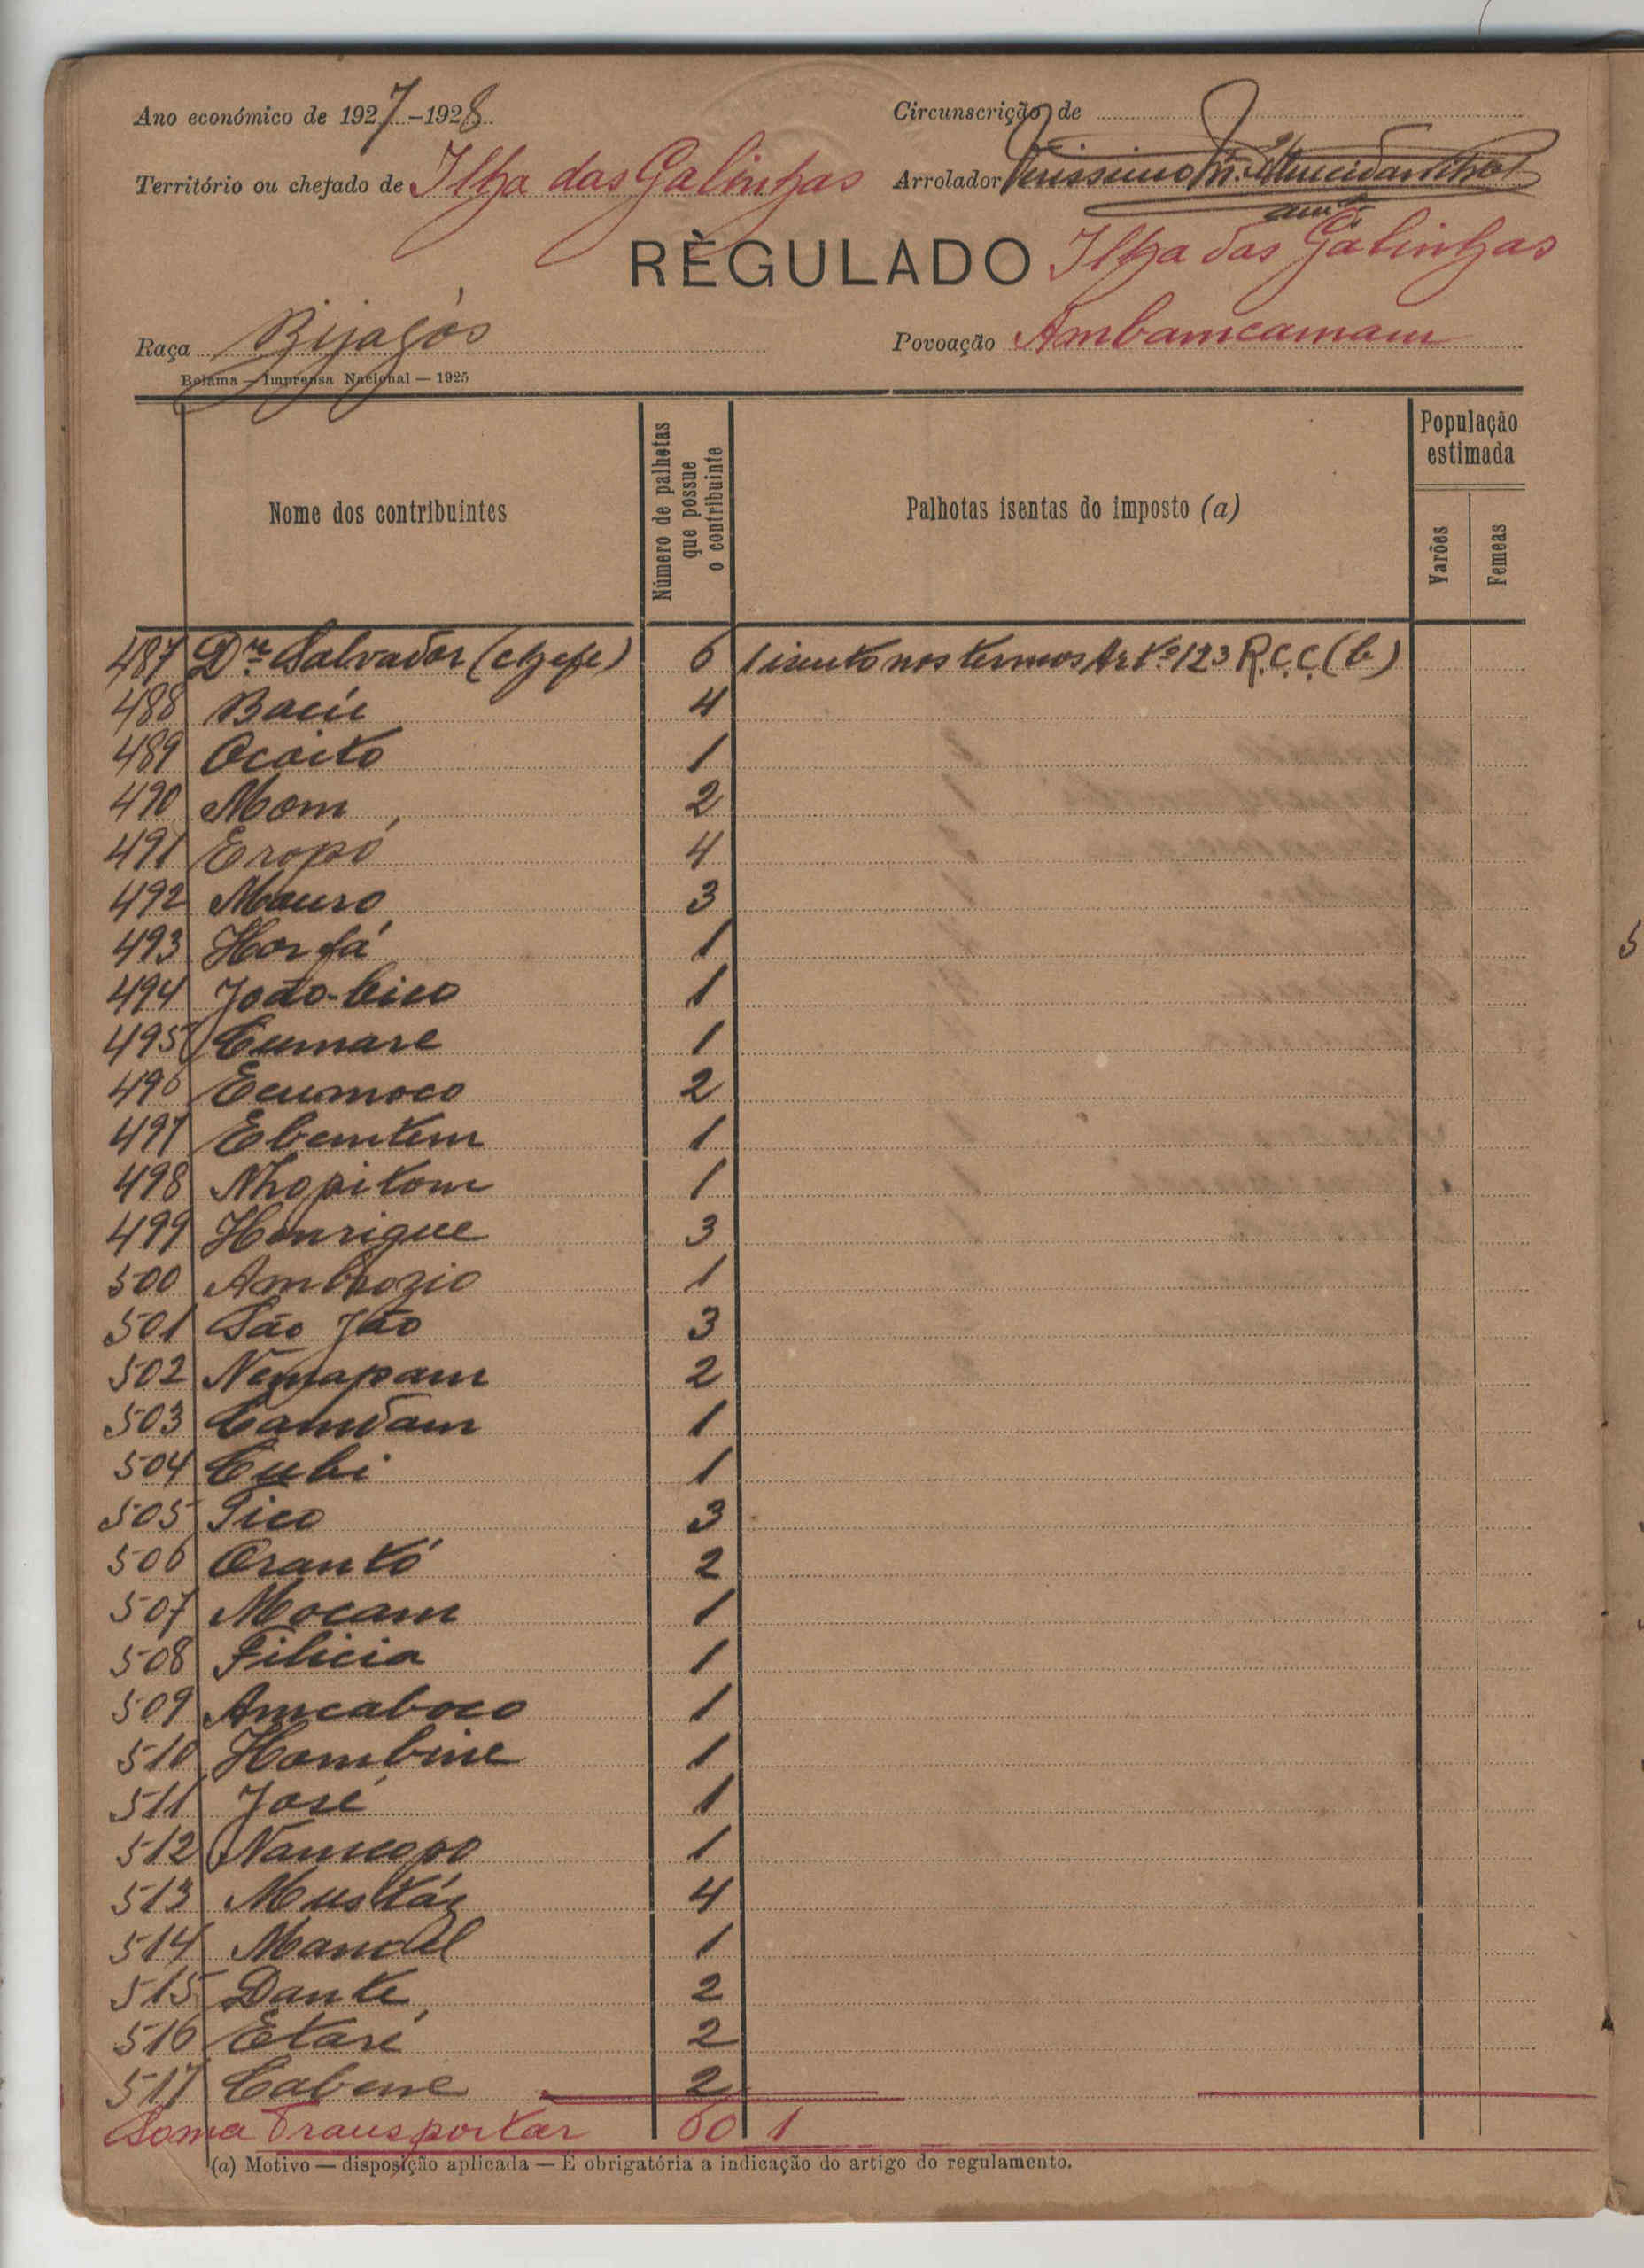 Ano económico de 1927-1928
Circunscrição de
Território ou chefado de Ilha das Galinhas
Arrolador Verissimo
RÈGULADO Ilha das Galinhas
Raça Bijagós
Povoação Ambamcamam
Bolama — Imprensa Nacional — 1925
Nome dos contribuintes
Número de palhotas que possue o contribuinte
Palhotas isentas do imposto (a)
População estimada
Varões
Femeas
487 Dr. Salvador (chefe) 6 1 isento nos termos Artº 123 R.C.C. (b)
488 Bacír 4
489 Ocoito 1
490 Mom 2
491 Eropó 4
492 Mauro 3
493 Horfá 1
494 João-bico 1
495 Cumare 1
496 Ecumoco 2
497 Ebemtem 1
498 Nhopitom 1
499 Henrique 3
500 Ambrozio 1
501 São Jão 3
502 Nemapam 2
503 Camdam 1
504 Cubi 1
505 Pico 3
506 Orantó 2
507 Mocam 1
508 Filicia 1
509 Amcaboco 1
510 Hombine 1
511 José 1
512 Namcopo 1
513 Mustáz 4
514 Manoel 1
515 Dante 2
516 Etaré 2
517 Cabene 2
Soma Transportar 60 1
(a) Motivo — disposição aplicada — É obrigatória a indicação do artigo do regulamento.